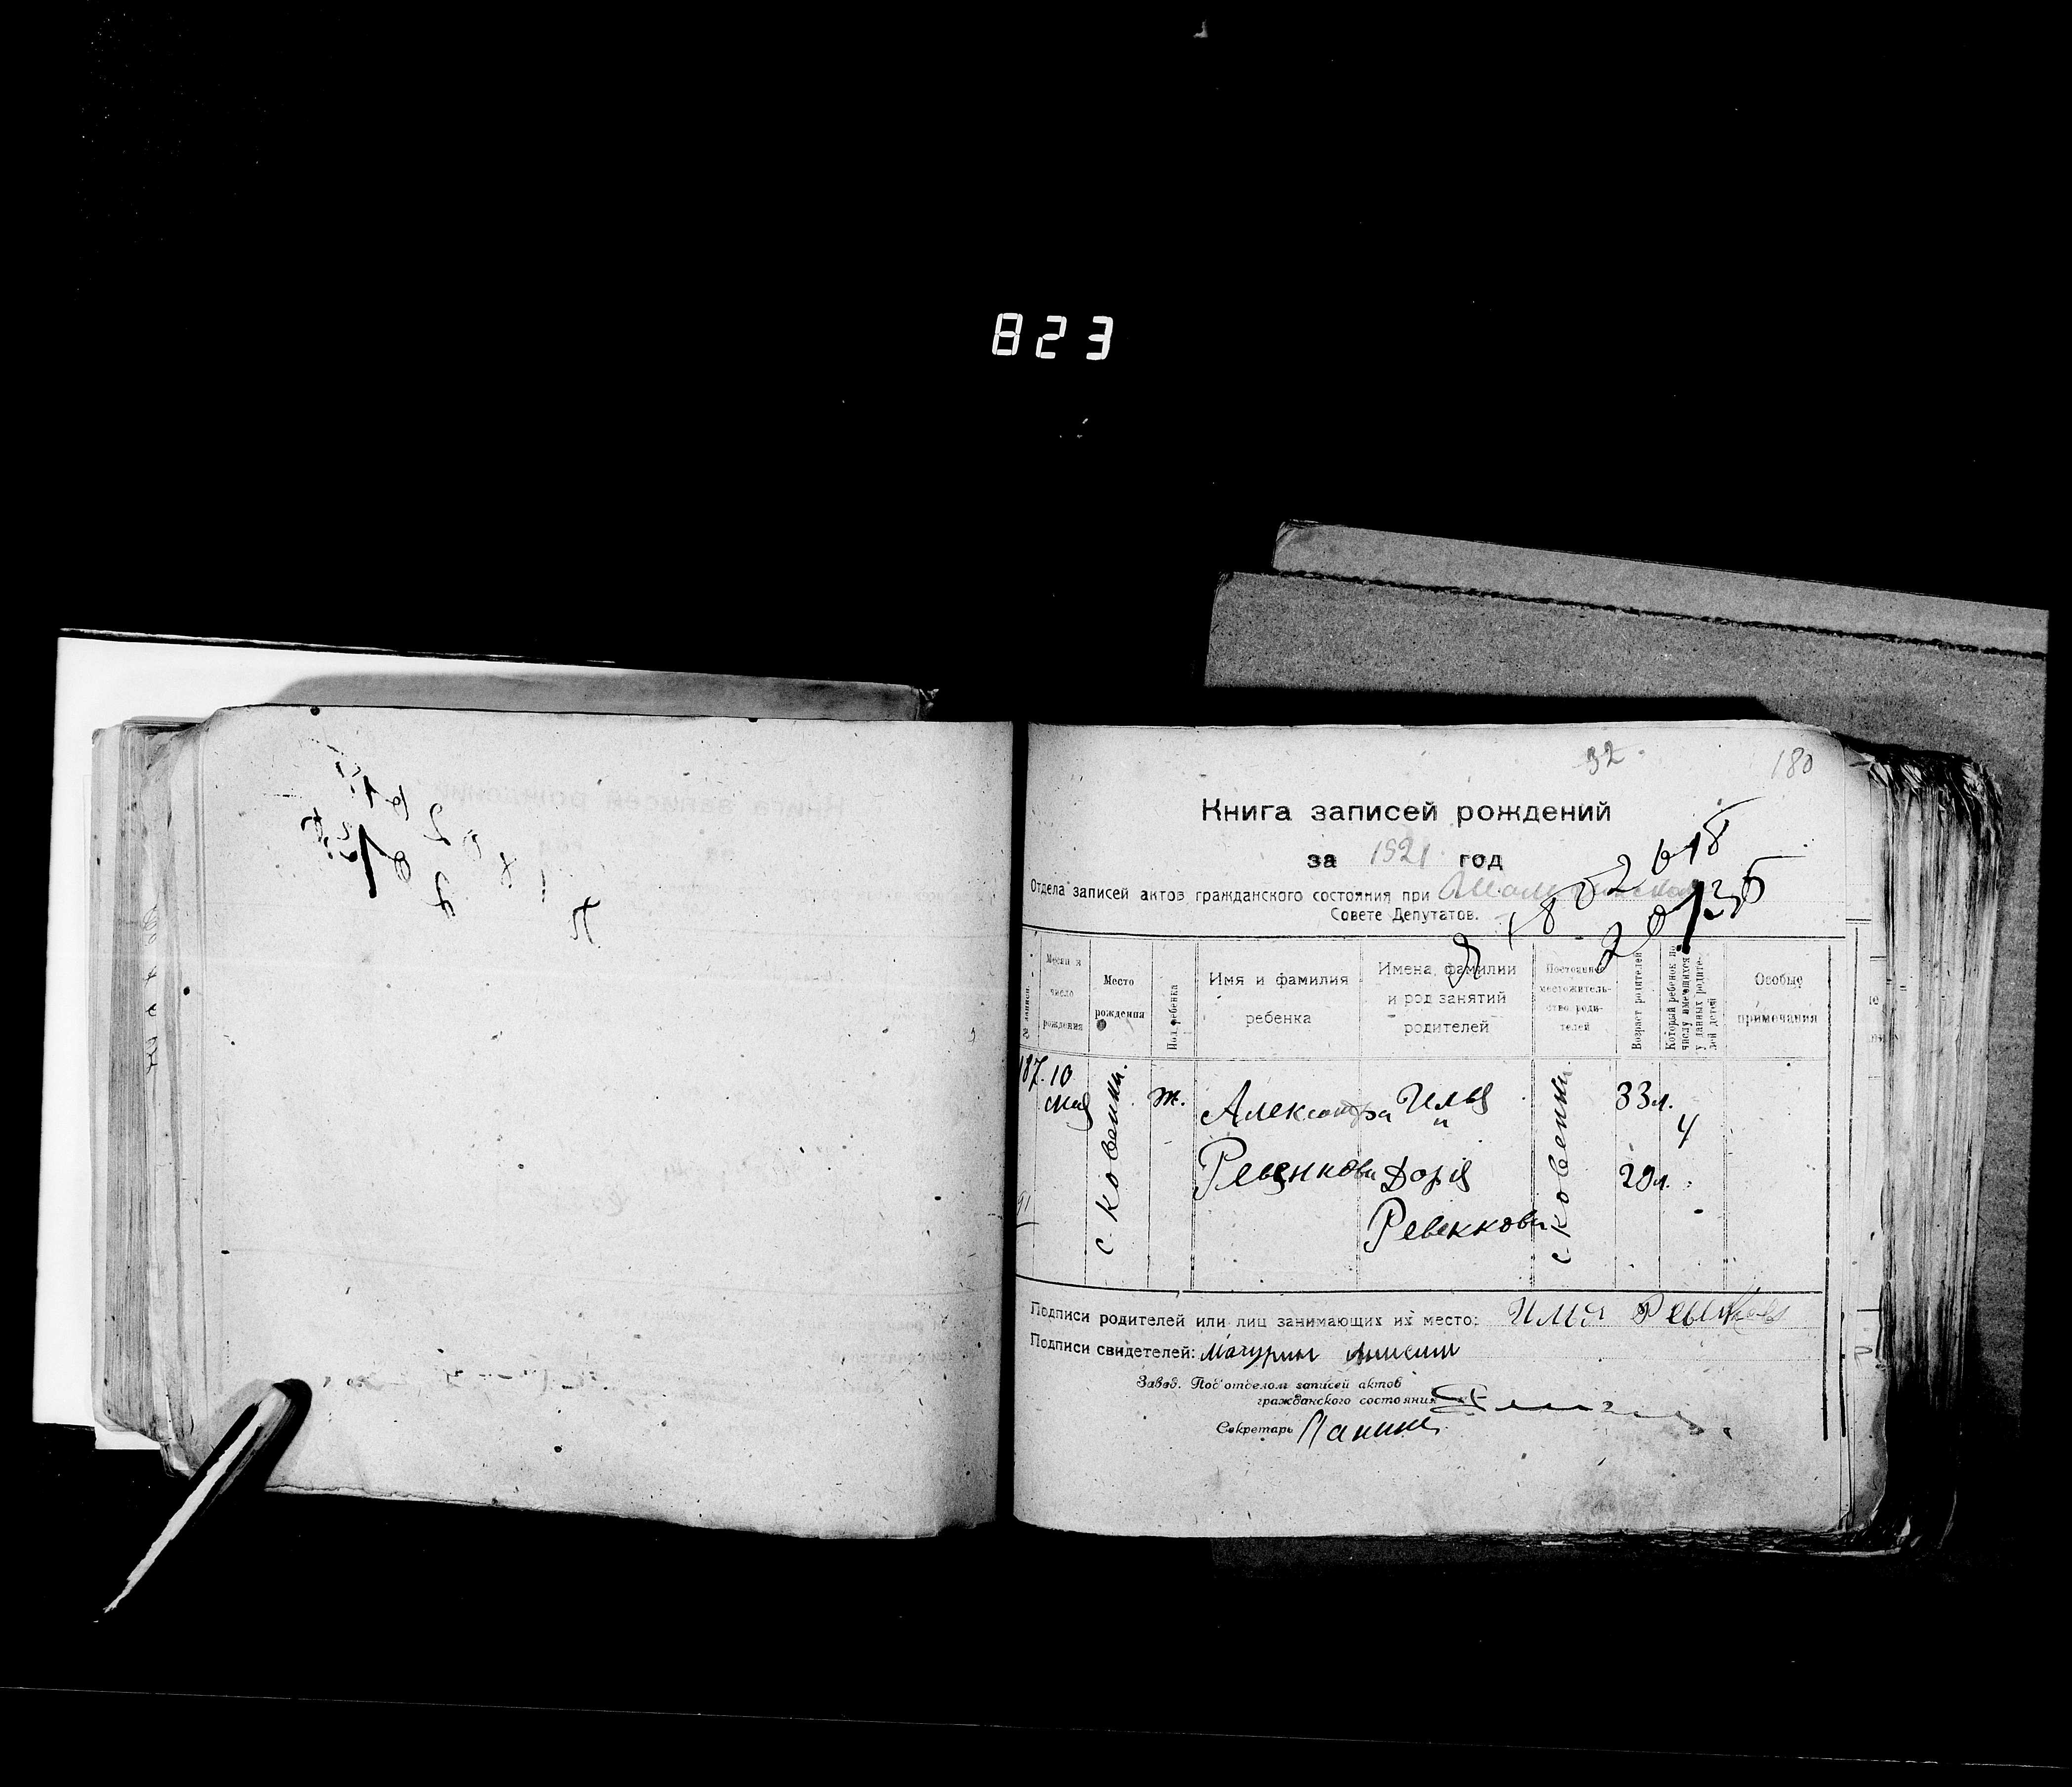 823
32
180
Книга записей рождений
за 1921 год
Отдела записей актов гражданского состояния при
Совете Депутатов.
№ записи
Месяц и число рождения
Место рождения
Пол ребенка
Имя и фамилия ребенка
Имена, фамилии и род занятий родителей
Постоянное местожительство родителей
Возраст родителей
Который ребенок по числу имеющихся у данных родителей детей
Особые примечания
187. 10 мая
с. Ковенки.
ж.
Александра
Ревенкова
Илья
и
Дарья
Ревенковы
с. Ковенки
33 л.
29 л.
4
Подписи родителей или лиц занимающих их место: Илья Ревенков
Подписи свидетелей: Мачурин
Завед. Под'отделом записей актов
гражданского состояния
Секретарь Панин